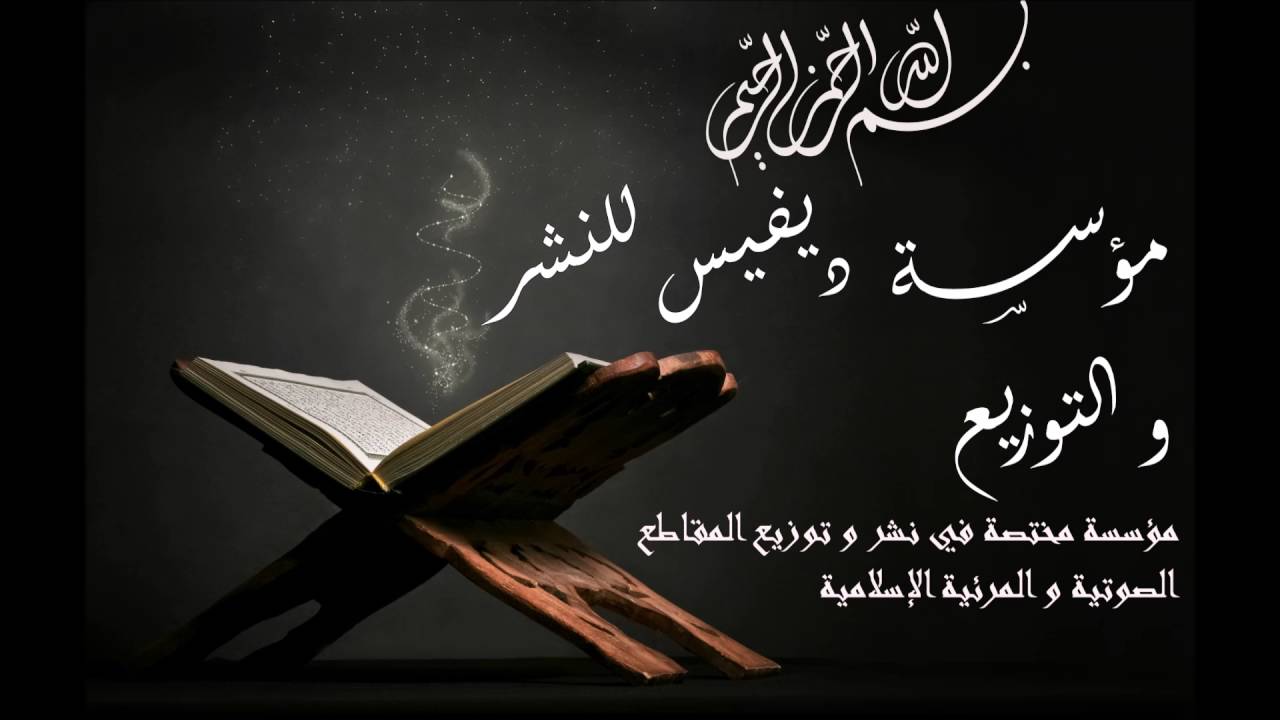 بسم الله الرحمن الرحيم
مؤسسة ديفيس للنشر
و التوزيع
مؤسسة مختصة في نشر و توزيع المقاطع
الصوتية و المرئية الإسلامية